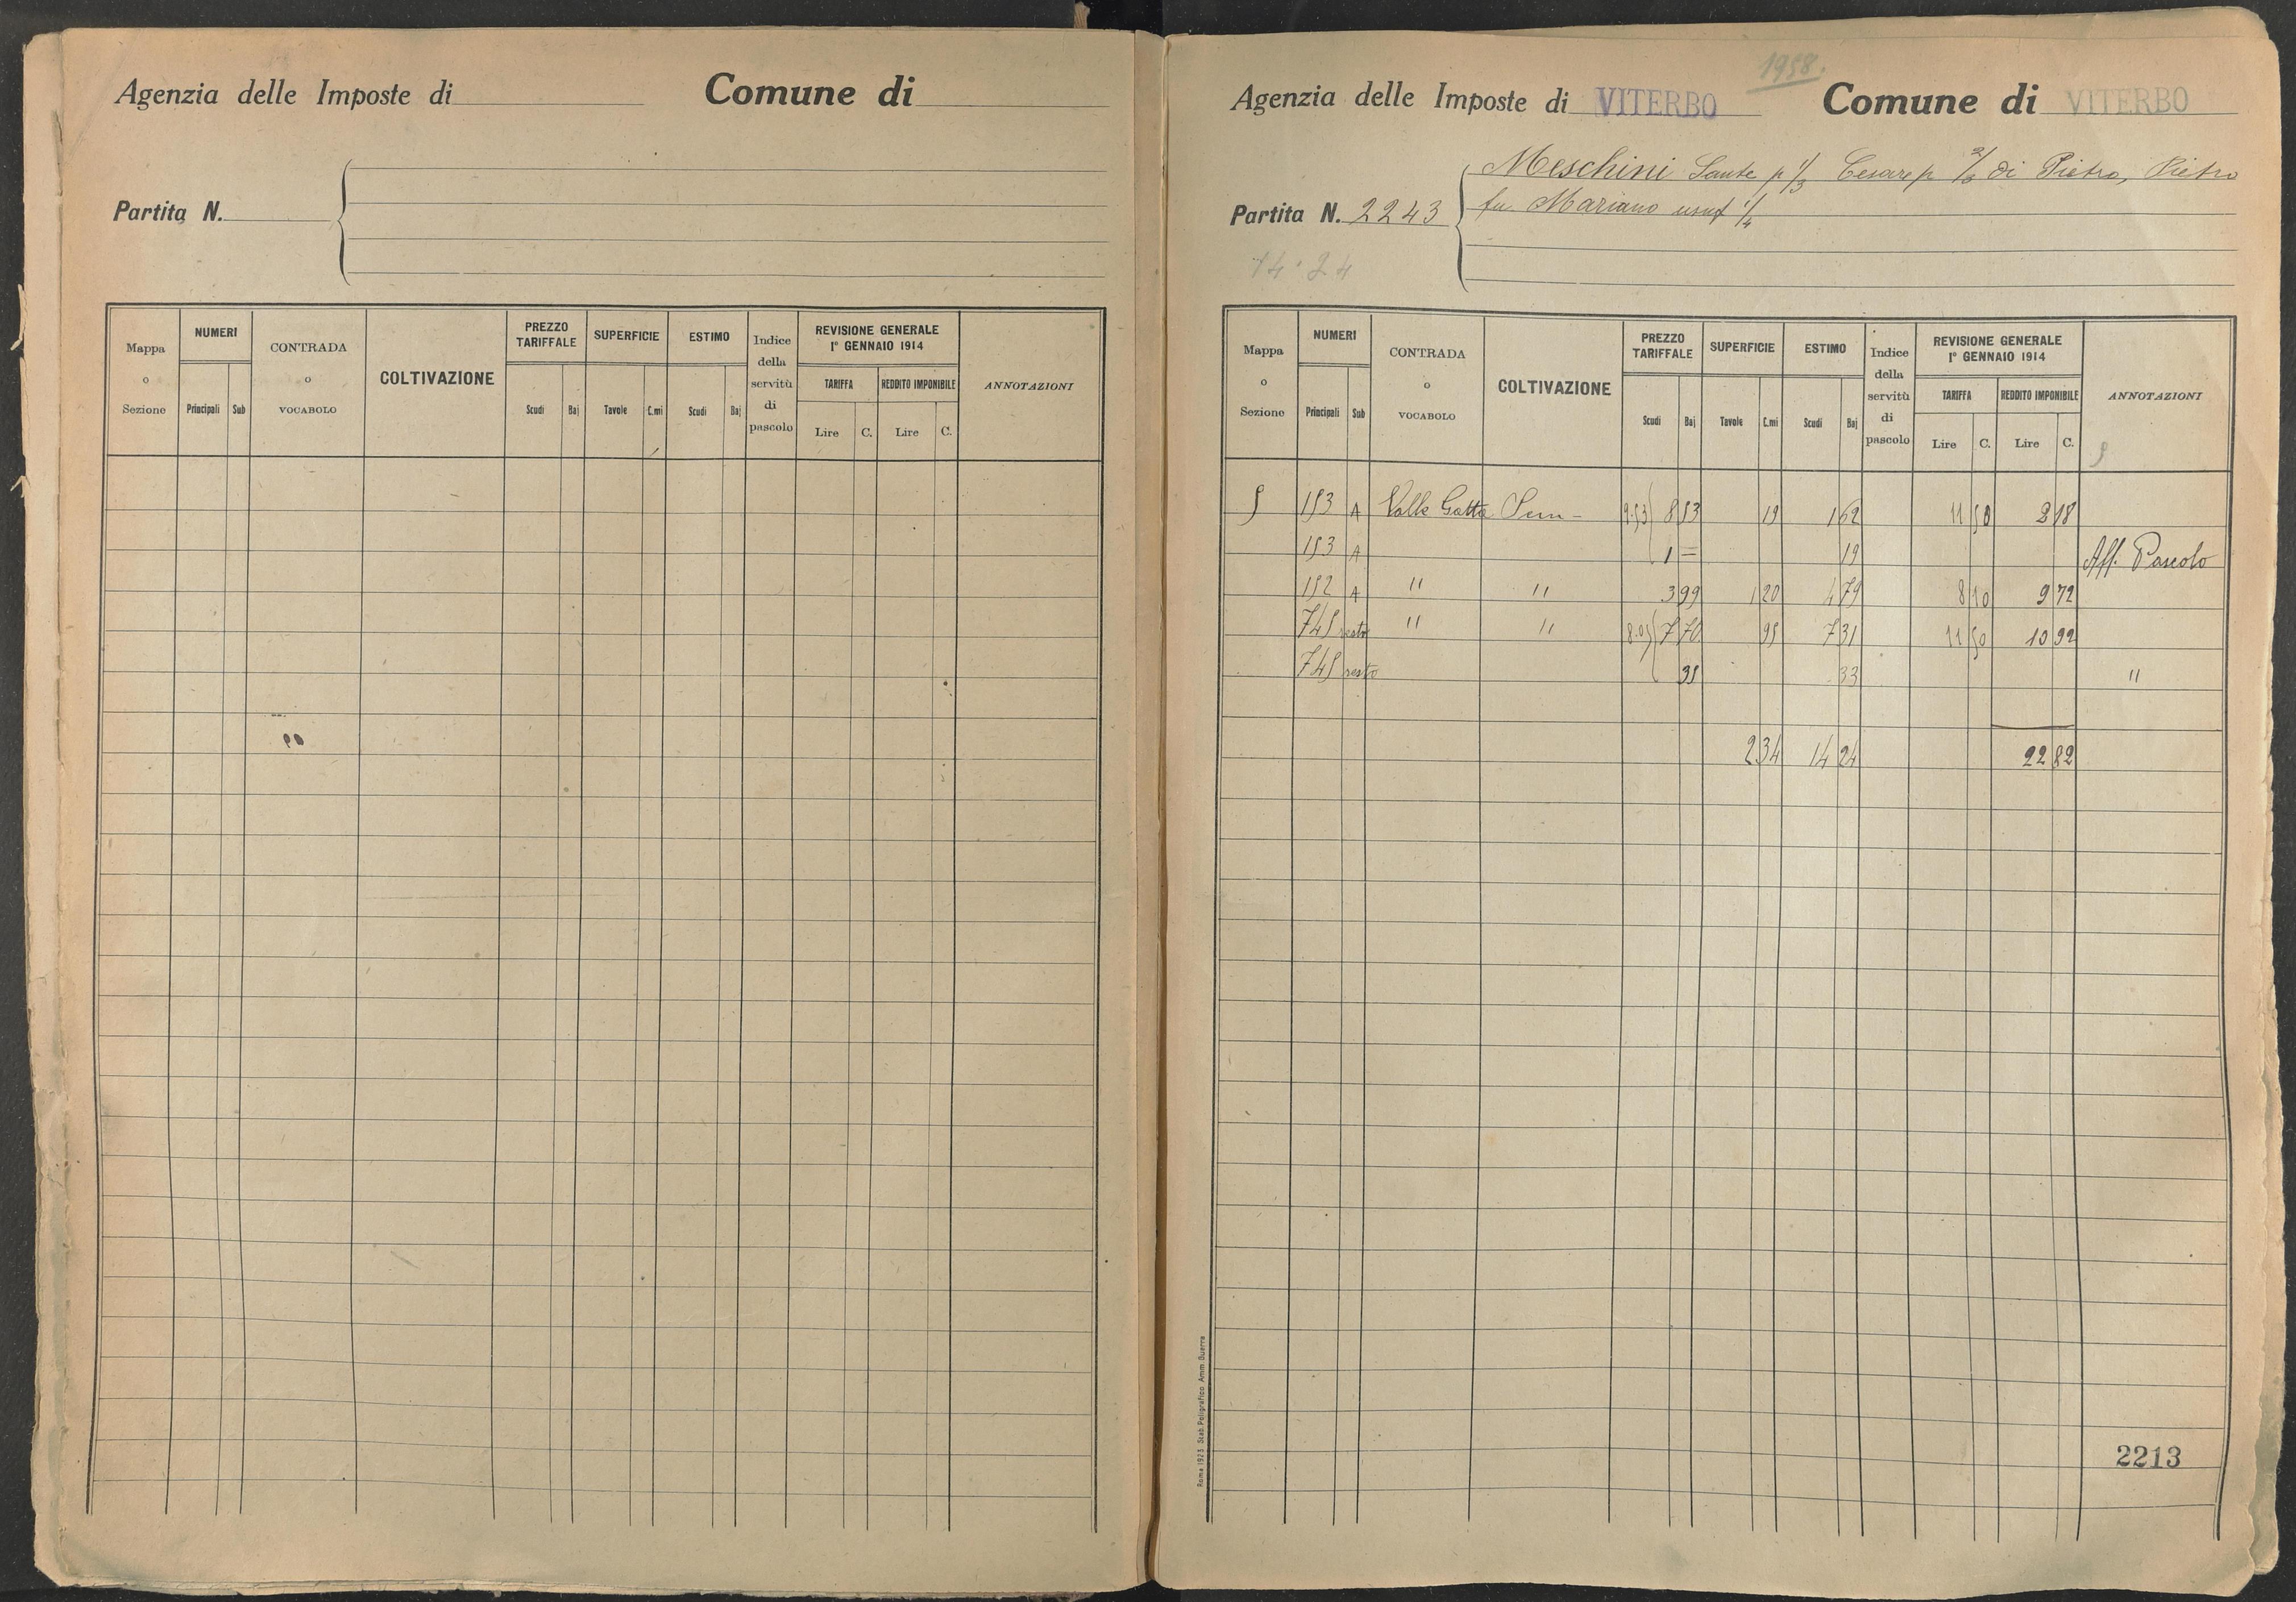 Agenzia delle Imposte di Comune di
Partita N.
Mappa o Sezione NUMERI Principali Sub CONTRADA o VOCABOLO COLTIVAZIONE PREZZO TARIFFALE Scudi Baj SUPERFICIE Tavole C.mi ESTIMO Scudi Baj Indice della servitù di pascolo REVISIONE GENERALE 1° GENNAIO 1914 TARIFFA Lire C. REDDITO IMPONIBILE Lire C. ANNOTAZIONI
1958.
Agenzia delle Imposte di VITERBO Comune di VITERBO
Meschini Sante p 1/3 Cesare p 2/3 di Pietro, Pietro
Partita N. 2243 fu Mariano usuf 1/4
14.24
Mappa o Sezione NUMERI Principali Sub CONTRADA o VOCABOLO COLTIVAZIONE PREZZO TARIFFALE Scudi Baj SUPERFICIE Tavole C.mi ESTIMO Scudi Baj Indice della servitù di pascolo REVISIONE GENERALE 1° GENNAIO 1914 TARIFFA Lire C. REDDITO IMPONIBILE Lire C. ANNOTAZIONI
5 153 A Valle Gatta Sem- 9.53 8 53 19 1 62 11 50 2 18
153 A 1 = 19 Aff. Pascolo
152 A " " 3 99 1 20 4 79 8 10 9 72
745 resto " " 8.05 7 70 95 7 31 11 50 10 92
745 resto 35 33 "
2 34 14 24 22 82
Roma 1923 Stab. Poligrafico Amm. Guerra
2213